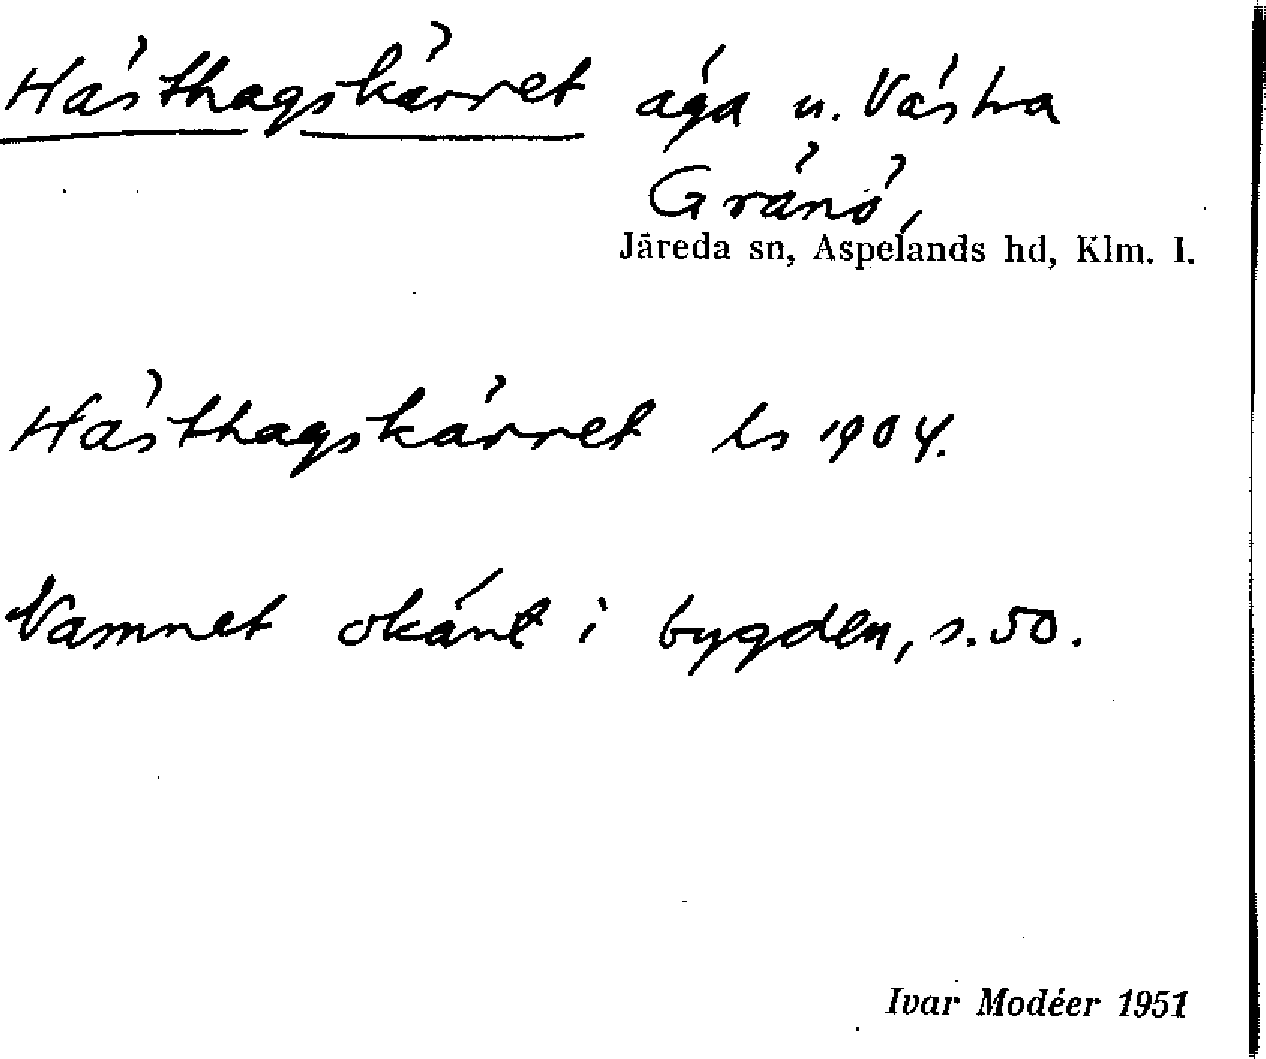 Hästhagskärret äga u. Västra
Gränö,
Järeda sn, Aspelands hd, Klm. l.
Hästhagskärret ls 1904.
Namnet okänt i bygden, s. 50.
Ivar Modéer 1951